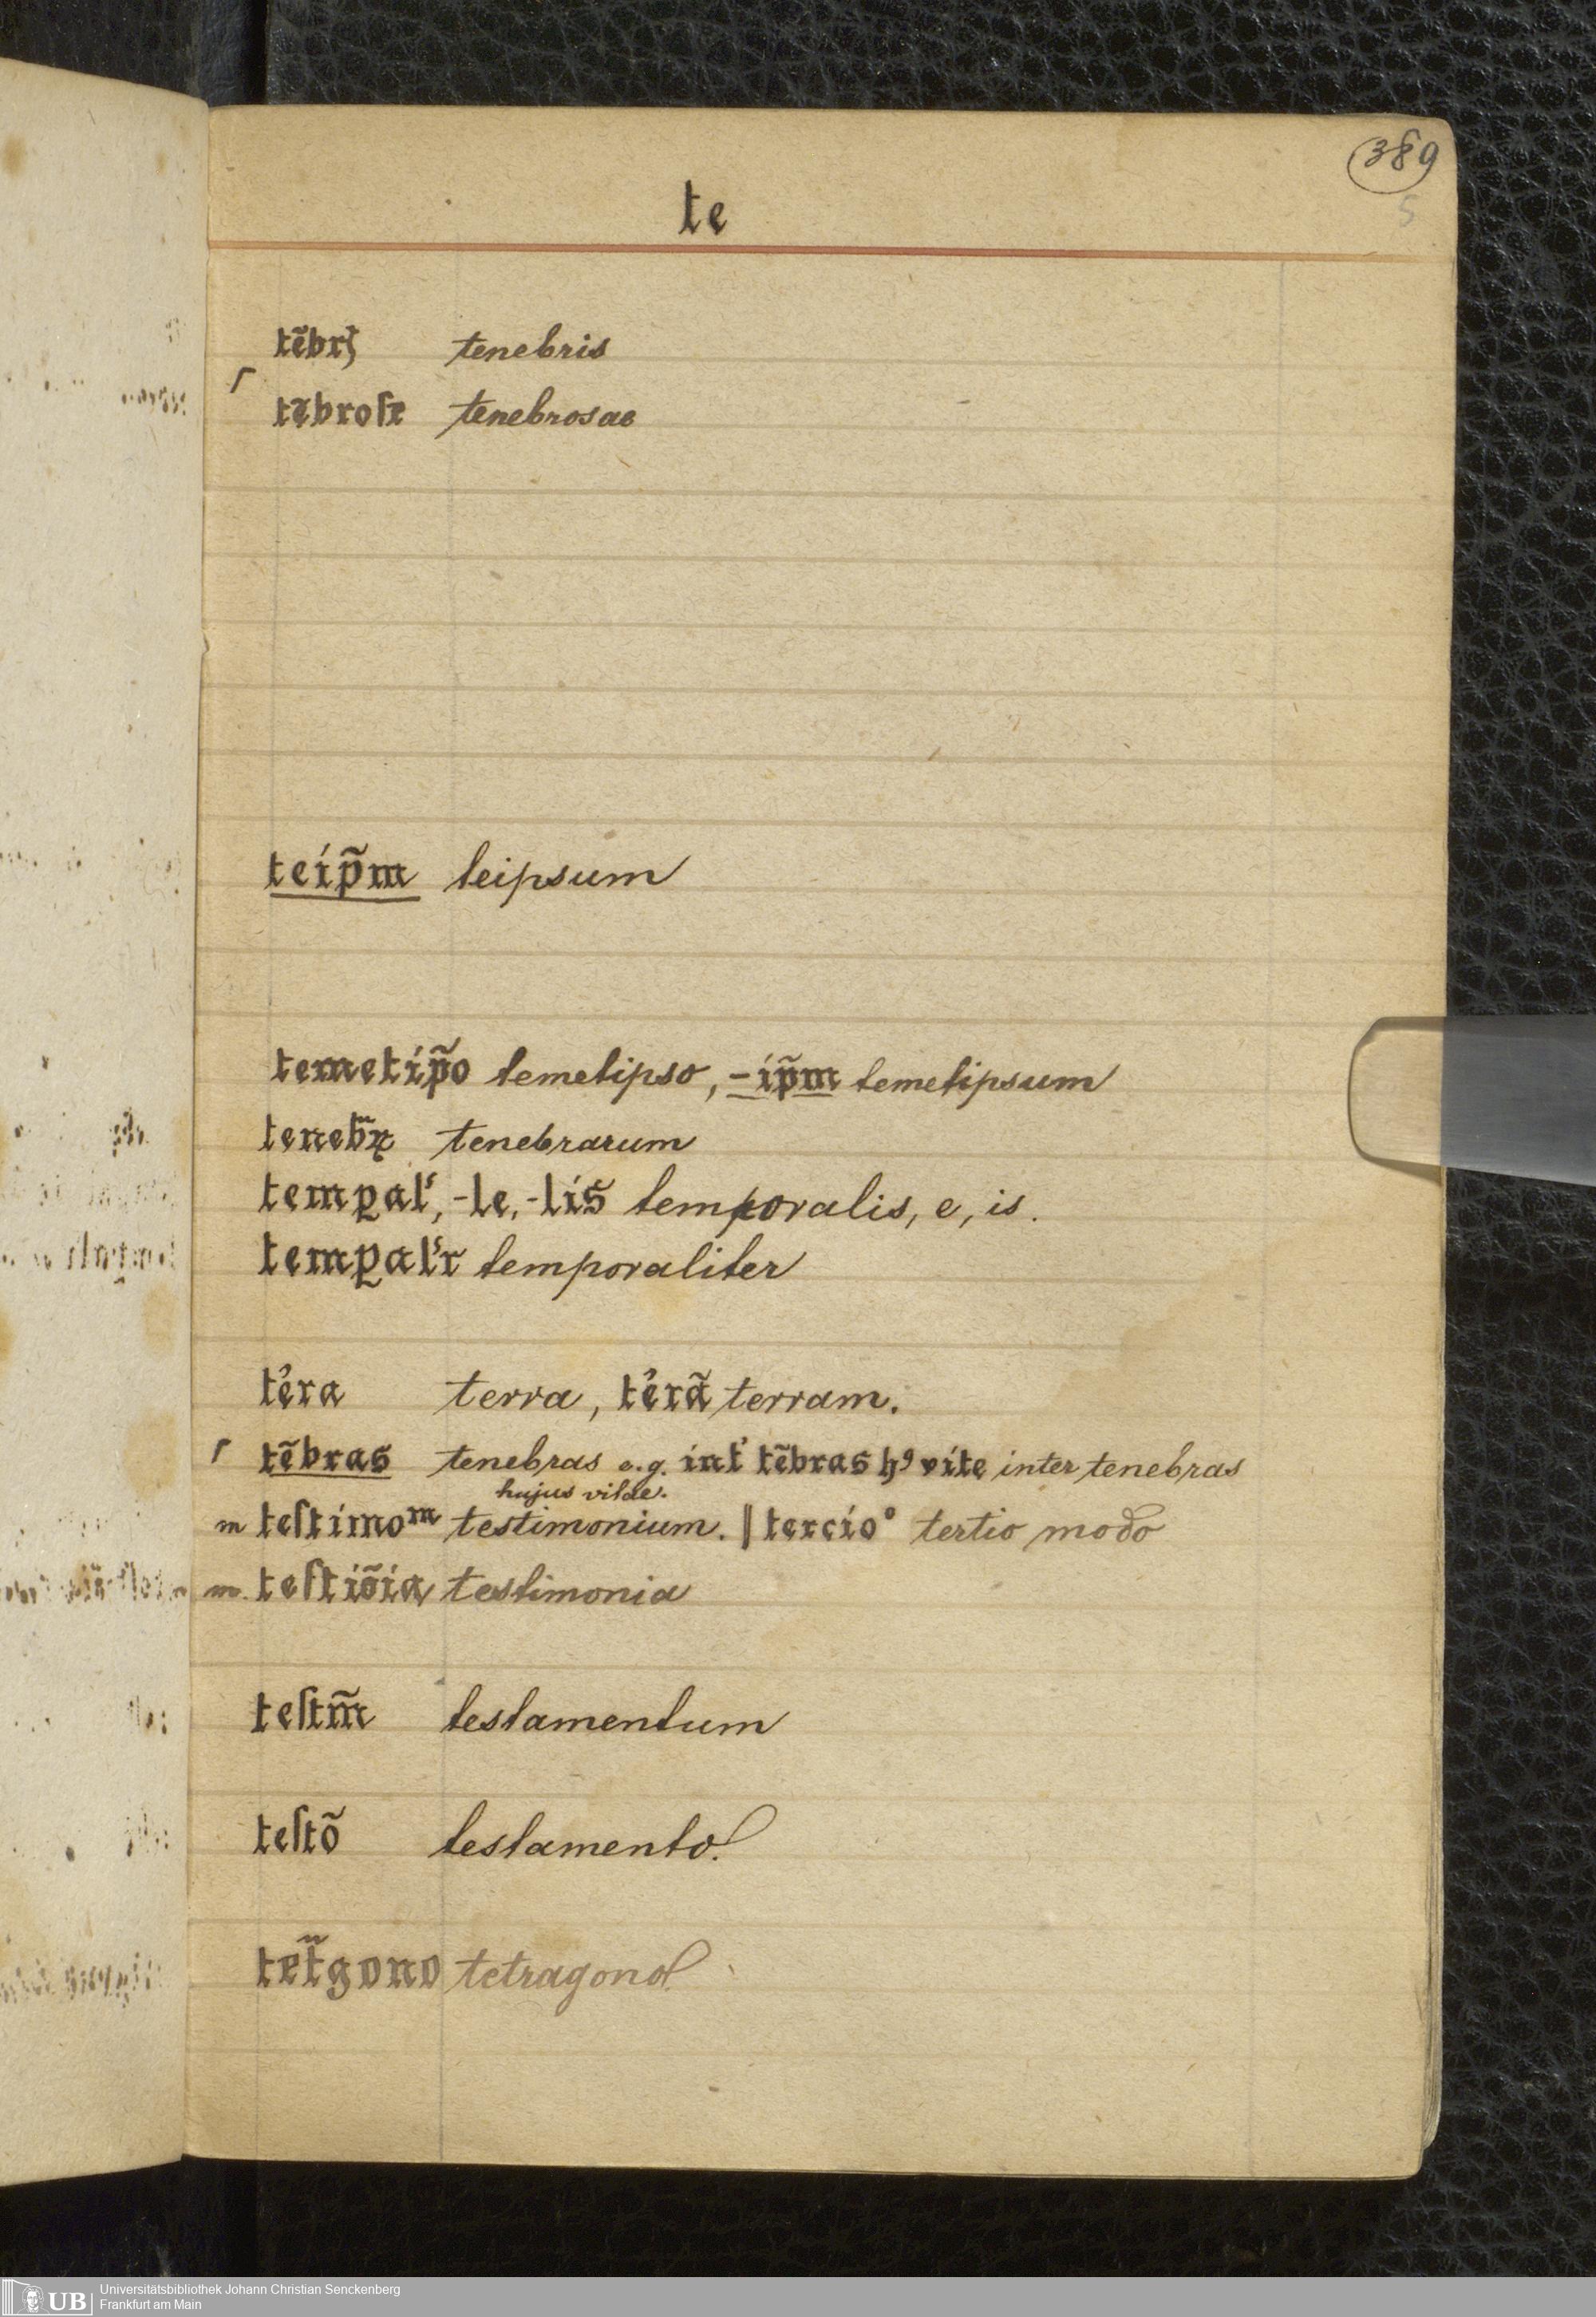 389
5
te
tẽbrꝭ tenebris
tẽbroſe tenebrosae
teip̃m teipsum
temetip̃o temetipso, -ip̃m temetipsum
teneb̃ꝝ tenebrarum
temꝑal', -le, -lis temporalis, e, is.
temꝑal'r temporaliter
t'era terra, t'erã terram.
r tẽbras tenebras e.g. int' tẽbras hꝰ vite inter tenebras
hujus vitae.
m teſtimoᵐ testimonium. || tercio° tertio modo
m. teſtiõia testimonia
teſtm̃ testamentum
teſtõ testamento.
tet̃gono tetragono.
UB Universitätsbibliothek Johann Christian Senckenberg
Frankfurt am Main